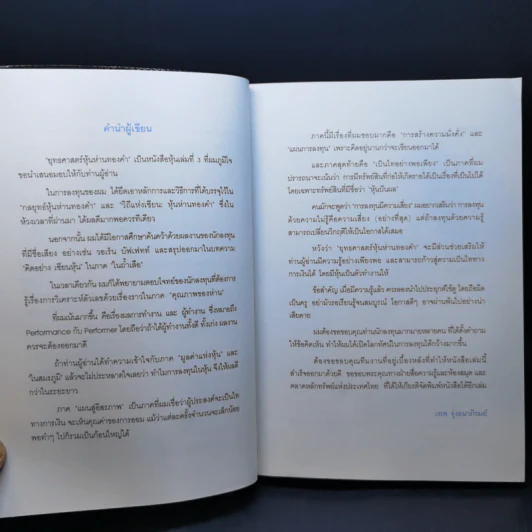 คำนำผู้เขียน
"ยุทธศาสตร์หุ้นห่านทองคำ" เป็นหนังสือหุ้นเล่มที่ 3 ที่ผมภูมิใจ
ขอนำเสนอมอบให้กับท่านผู้อ่าน
ในการลงทุนของผม ได้ยึดเอาหลักการและวิธีการที่ได้บรรจุไว้ใน
"กลยุทธ์หุ้นห่านทองคำ" และ "วิถีแห่งเซียน: หุ้นห่านทองคำ" ซึ่งใน
ห้วงเวลาที่ผ่านมา ได้ผลดีมากพอควรทีเดียว
นอกจากนั้น ผมได้มีโอกาสศึกษาค้นคว้าด้วยผลงานของนักลงทุน
ที่มีชื่อเสียง อย่างเช่น วอเร็น บัฟเฟ็ทท์ และสรุปออกมาในบทความ
"คิดอย่าง เซียนหุ้น" ในภาค "ในถ้ำเสือ"
ในเวลาเดียวกัน ผมก็ได้พยายามตอบโจทย์ของนักลงทุนที่ต้องการ
รู้เรื่องการวิเคราะห์ตัวเลขด้วยเรื่องราวในภาค "คุณภาพของห่าน"
ที่ผมเน้นมากขึ้น คือเรื่องผลการทำงาน และ ผู้ทำงาน ซึ่งหมายถึง
Performance กับ Performer โดยถือว่าถ้าได้ผู้ทำงานทั้งดี ทั้งเก่ง ผลงาน
ควรจะต้องออกมาดี
ถ้าท่านผู้อ่านได้ทำความเข้าใจกับภาค "มูลค่าแห่งหุ้น" และ
"ในสมรภูมิ" แล้วจะไม่ประหลาดใจเลยว่า ทำไมการลงทุนในหุ้น จึงให้ผลดี
กว่าในระยะยาว
ภาค "แผนสู่อิสรภาพ" เป็นภาคที่ผมเชื่อว่าผู้ประสงค์จะเป็นไท
ทางการเงิน จะเห็นคุณค่าของการออม แม้ว่าแต่ละครั้งจำนวนจะเล็กน้อย
พอทำๆ ไปก็รวมเป็นก้อนใหญ่ได้
ภาคนี้มีเรื่องที่ผมชอบมากคือ "การสร้างความมั่งคั่ง" และ
"แผนการลงทุน" เพราะคิดอยู่นานกว่าจะเขียนออกมาได้
และภาคสุดท้ายคือ "เป็นไทอย่างพอเพียง" เป็นภาคที่ผม
ปรารถนาจะเน้นว่า การมีทรัพย์สินที่ก่อให้เกิดรายได้เป็นเรื่องที่เป็นไปได้
โดยเฉพาะทรัพย์สินที่มีชื่อว่า "หุ้นปันผล"
คนมักจะพูดว่า "การลงทุนมีความเสี่ยง" ผมอยากเสริมว่า การลงทุน
ด้วยความไม่รู้คือความเสี่ยง (อย่างที่สุด) แต่ถ้าลงทุนด้วยความรู้
สามารถเปลี่ยนวิกฤติให้เป็นโอกาสได้เสมอ
หวังว่า "ยุทธศาสตร์หุ้นห่านทองคำ" จะมีส่วนช่วยเสริมให้
ท่านผู้อ่านมีความรู้อย่างเพียงพอ และสามารถก้าวสู่ความเป็นไททาง
การเงินได้ โดยมีหุ้นเป็นตัวทำงานให้
ข้อสำคัญ เมื่อมีความรู้แล้ว ควรลองนำไปประยุกต์ใช้ดู โดยถือผิด
เป็นครู อย่ามัวรอเรียนรู้จนสมบูรณ์ โอกาสดีๆ อาจผ่านพ้นไปอย่างน่า
เสียดาย
ผมต้องขอขอบคุณท่านนักลงทุนมากมายหลายคน ที่ได้ตั้งคำถาม
ให้ข้อคิดเห็น ทำให้ผมได้เปิดโลกทัศน์ในการลงทุนได้กว้างมากขึ้น
ต้องขอขอบคุณทีมงานที่อยู่เบื้องหลังที่ทำให้หนังสือเล่มนี้
สำเร็จออกมาด้วยดี ขอขอบพระคุณทางฝ่ายสื่อความรู้และห้องสมุด และ
ตลาดหลักทรัพย์แห่งประเทศไทย ที่ได้ให้เกียรติจัดพิมพ์หนังสือได้อีกเล่ม
เทพ รุ่งธนาภิรมย์